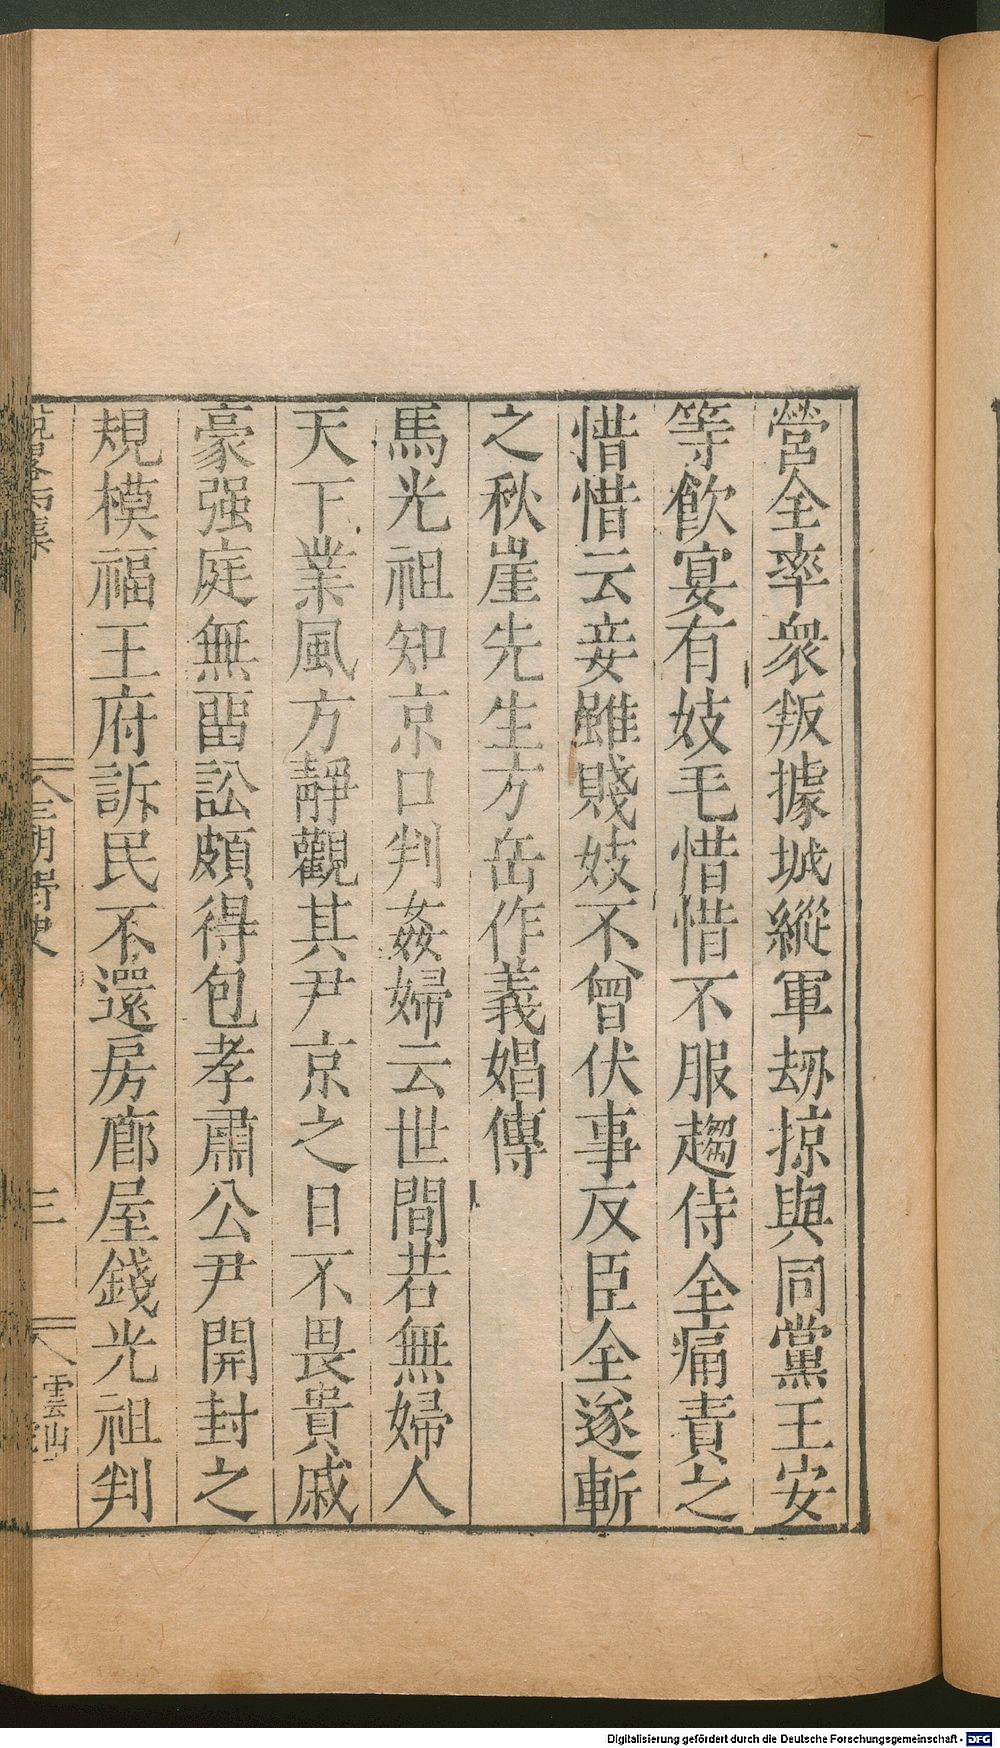 營全率衆叛據城縱軍刼掠與同黨王安
等飮宴有妓毛惜惜不服趨侍全痛責之
惜惜云妾雖賤妓不曾伏事反臣全遂斬
之秋崖先生方岳作義娼傳
馬光祖知京口判姦婦云世間若無婦人
天下業風方靜觀其尹京之日不畏貴戚
豪强庭無畱訟頗得包孝肅公尹開封之
規模福王府訴民不還房廊屋錢光祖判
三朝野史
三
雲山
Digitalisierung gefördert durch die Deutsche Forschungsgemeinschaft - DFG